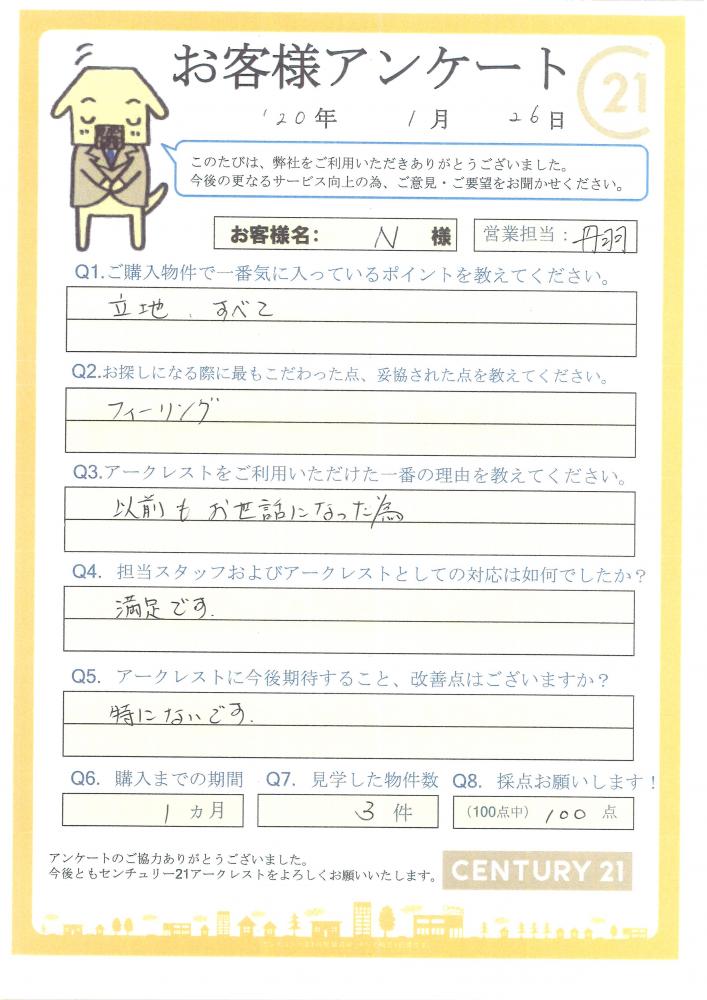 お客様アンケート
21
'20年 1月 26日
このたびは、弊社をご利用いただきありがとうございました。
今後の更なるサービス向上の為、ご意見・ご要望をお聞かせください。
お客様名: N 様 営業担当:丹羽
Q1.ご購入物件で一番気に入っているポイントを教えてください。
立地、すべて
Q2.お探しになる際に最もこだわった点、妥協された点を教えてください。
フィーリング
Q3.アークレストをご利用いただけた一番の理由を教えてください。
以前もお世話になった為
Q4. 担当スタッフおよびアークレストとしての対応は如何でしたか？
満足です.
Q5. アークレストに今後期待すること、改善点はございますか？
特にないです.
Q6. 購入までの期間 Q7. 見学した物件数 Q8. 採点お願いします！
1 カ月 3 件 (100点中) 100 点
アンケートのご協力ありがとうございました。
今後ともセンチュリー21アークレストをよろしくお願いいたします。
CENTURY 21